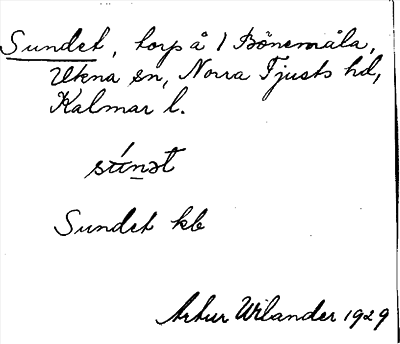 Sundet, torp å 1 Bönemåla,
Ukna sn, Norra Tjusts hd,
Kalmar l.
súnət
Sundet kb
Artur Wilander 1929